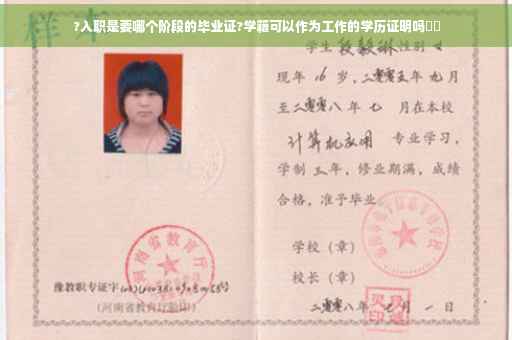 ?入职是要哪个阶段的毕业证?学籍可以作为工作的学历证明吗
样本
学生 段毅琳 性别 女
现年 16 岁,二零零五年 九月
至二零零八年 七 月在本校
计算机应用 专业学习,
学制 三 年,修业期满,成绩
合格,准予毕业。
学校(章)
校长(章)
二零零八年 七月 一日
河南省教育厅
豫教职专证字
(河南省教育厅验印)